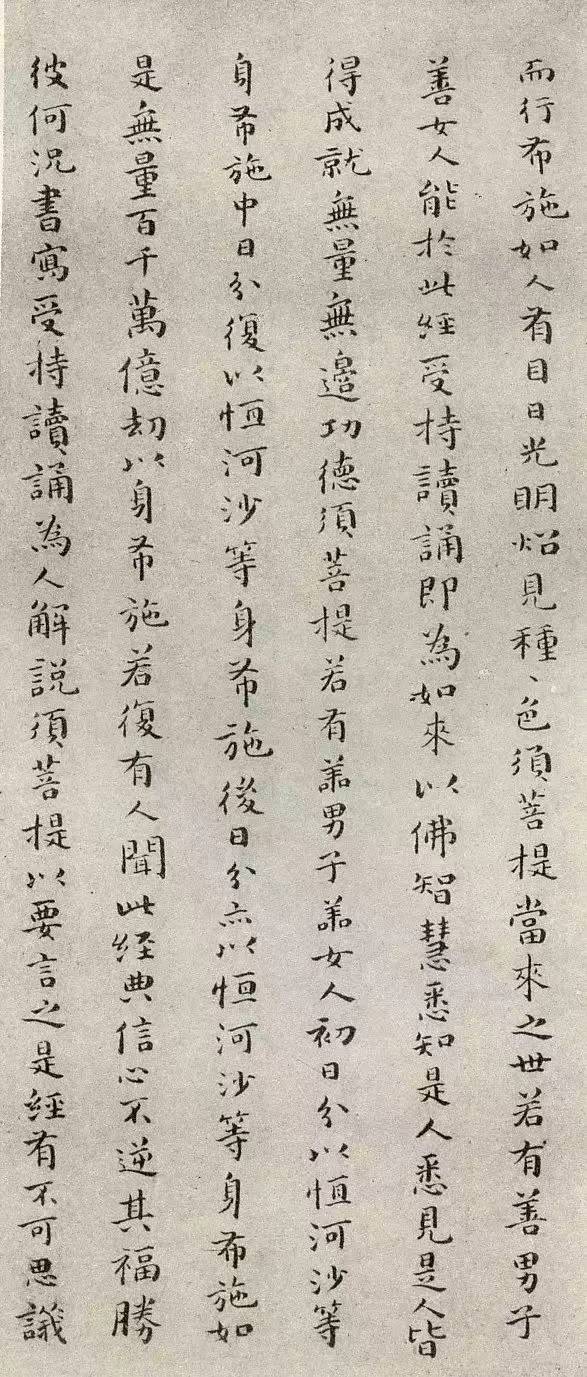 而行布施如人有目日光明炤見種〻色須菩提當來之世若有善男子
善女人能於此經受持讀誦即為如來以佛智慧悉知是人悉見是人皆
得成就無量無邊功德須菩提若有善男子善女人初日分以恒河沙等
身布施中日分復以恒河沙等身布施後日分亦以恒河沙等身布施如
是無量百千萬億劫以身布施若復有人聞此經典信心不逆其福勝
彼何況書寫受持讀誦為人解說須菩提以要言之是經有不可思議